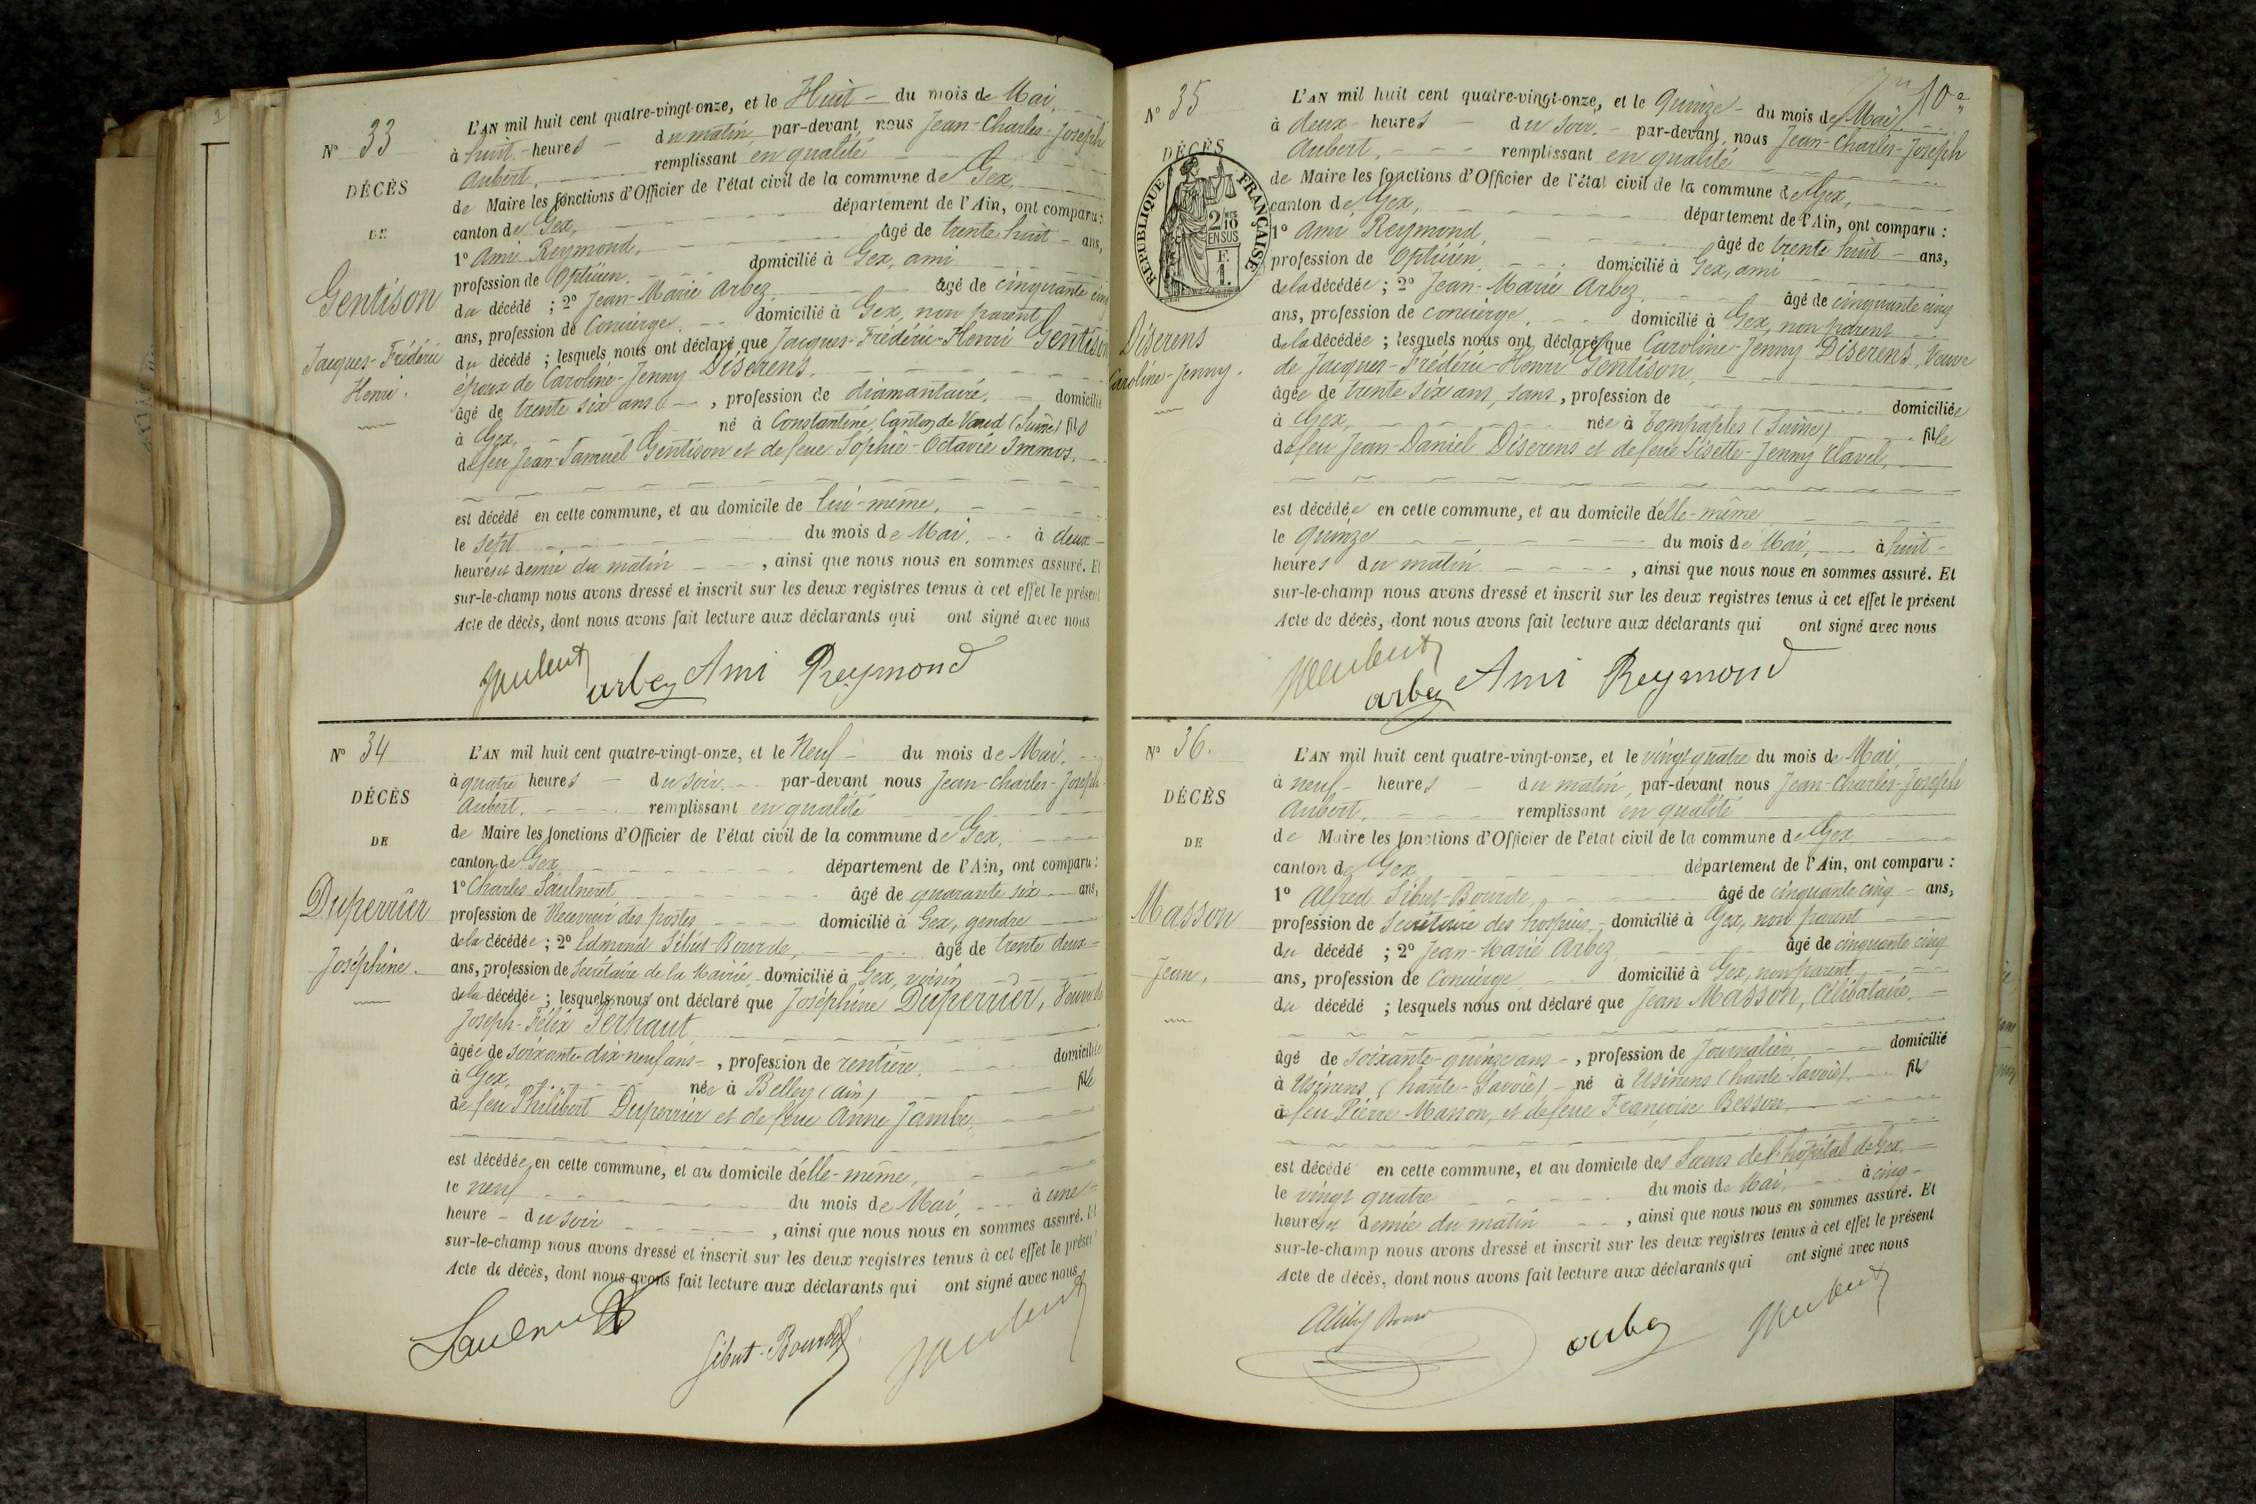 N° 33
DÉCÈS
DE
Gentison
Jacques-Frédéric
Henri.
L'AN mil huit cent quatre-vingt-onze, et le Huit - du mois de Mai,
à huit - heures - du matin par-devant nous Jean-Charles-Joseph
Aubert, remplissant en qualité
de Maire les fonctions d'Officier de l'état civil de la commune de Gex,
canton de Gex, département de l'Ain, ont comparu :
1° Ami Reymond, âgé de trente huit - ans,
profession de Opticien, domicilié à Gex, ami
du décédé ; 2° Jean-Marie Arbez, âgé de cinquante cinq
ans, profession de Concierge, domicilié à Gex, non parent
du décédé ; lesquels nous ont déclaré que Jacques-Frédéric-Henri Gentison
époux de Caroline-Jenny Diserens,
âgé de trente six ans -, profession de diamantaire, domicilié
à Gex, né à Constantine, Canton de Vaud (Suisse) fils
de feu Jean-Samuel Gentison et de feue Sophie-Octavie Immos,
est décédé en cette commune, et au domicile de lui-même,
le sept du mois de Mai, à deux -
heures et demie du matin, ainsi que nous nous en sommes assuré. Et
sur-le-champ nous avons dressé et inscrit sur les deux registres tenus à cet effet le présent
Acte de décès, dont nous avons fait lecture aux déclarants qui ont signé avec nous
JAubert arbez Ami Reymond
N° 34
DÉCÈS
DE
Duperrier
Joséphine.
L'AN mil huit cent quatre-vingt-onze, et le Neuf - du mois de Mai,
à quatre heures - du soir, par-devant nous Jean-Charles-Joseph-
Aubert, remplissant en qualité
de Maire les fonctions d'Officier de l'état civil de la commune de Gex,
canton de Gex département de l'Ain, ont comparu :
1° Charles Saulneret âgé de quarante six ans,
profession de Receveur des postes domicilié à Gex, gendre
de la décédée ; 2° Edmond Sibut-Bourde, âgé de trente deux -
ans, profession de Secrétaire de la Mairie, domicilié à Gex, voisin
de la décédée ; lesquels nous ont déclaré que Joséphine Duperrier, Veuve de
Joseph-Félix Pernaut
âgée de soixante-dix-neuf ans -, profession de rentière, domiciliée
à Gex, née à Belley (ain) fille
de feu Philibert Duperrier et de feue Anne Jambe,
est décédée en cette commune, et au domicile d'elle-même,
le neuf du mois de Mai, à une -
heure - du soir, ainsi que nous nous en sommes assuré. Et
sur-le-champ nous avons dressé et inscrit sur les deux registres tenus à cet effet le présent
Acte de décès, dont nous avons fait lecture aux déclarants qui ont signé avec nous
Saulneret Sibut-Bourde JAubert
10e
N° 35
DÉCÈS
RÉPUBLIQUE FRANÇAISE
2/10 MES
EN SUS
F.
1.
Diserens
Caroline-Jenny.
L'AN mil huit cent quatre-vingt-onze, et le quinze - du mois de Mai,
à deux - heures - du soir, - par-devant nous Jean-Charles-Joseph
Aubert, remplissant en qualité
de Maire les fonctions d'Officier de l'état civil de la commune de Gex,
canton de Gex, département de l'Ain, ont comparu :
1° Ami Reymond, âgé de trente huit - ans,
profession de Opticien domicilié à Gex, ami
de la décédée ; 2° Jean-Marie Arbez, âgé de cinquante cinq
ans, profession de concierge, domicilié à Gex, non parent
de la décédée ; lesquels nous ont déclaré que Caroline-Jenny Diserens, Veuve
de Jacques-Frédéric-Henri Gentison,
âgée de trente six ans, sans, profession de domiciliée
à Gex, née à Pompaples (Suisse) fille
de feu Jean-Daniel Diserens et de feue Lisette-Jenny Clavel,
est décédée en cette commune, et au domicile d'elle-même
le quinze du mois de Mai, à huit -
heures du matin, ainsi que nous nous en sommes assuré. Et
sur-le-champ nous avons dressé et inscrit sur les deux registres tenus à cet effet le présent
Acte de décès, dont nous avons fait lecture aux déclarants qui ont signé avec nous
JAubert arbez Ami Reymond
N° 36.
DÉCÈS
DE
Masson
Jean,
L'AN mil huit cent quatre-vingt-onze, et le vingt quatre du mois de Mai,
à neuf - heures - du matin, par-devant nous Jean-Charles-Joseph
Aubert, remplissant en qualité
de Maire les fonctions d'Officier de l'état civil de la commune de Gex
canton de Gex département de l'Ain, ont comparu :
1° Alfred Sibut-Bourde, âgé de cinquante cinq - ans,
profession de Secrétaire des hospices, domicilié à Gex, non parent
du décédé ; 2° Jean-Marie Arbez âgé de cinquante cinq
ans, profession de Concierge domicilié à Gex, non parent
du décédé ; lesquels nous ont déclaré que Jean Masson, Célibataire,
âgé de soixante-quinze ans -, profession de Journalier, domicilié
à Usinens (haute-Savoie) - né à Usinens (haute Savoie), fils
de feu Pierre Masson, et de feue Françoise Besson,
est décédé en cette commune, et au domicile des Sœurs de l'hôpital de Gex
le vingt quatre du mois de Mai, à cinq -
heures et demie du matin, ainsi que nous nous en sommes assuré. Et
sur-le-champ nous avons dressé et inscrit sur les deux registres tenus à cet effet le présent
Acte de décès, dont nous avons fait lecture aux déclarants qui ont signé avec nous
arbez JAubert